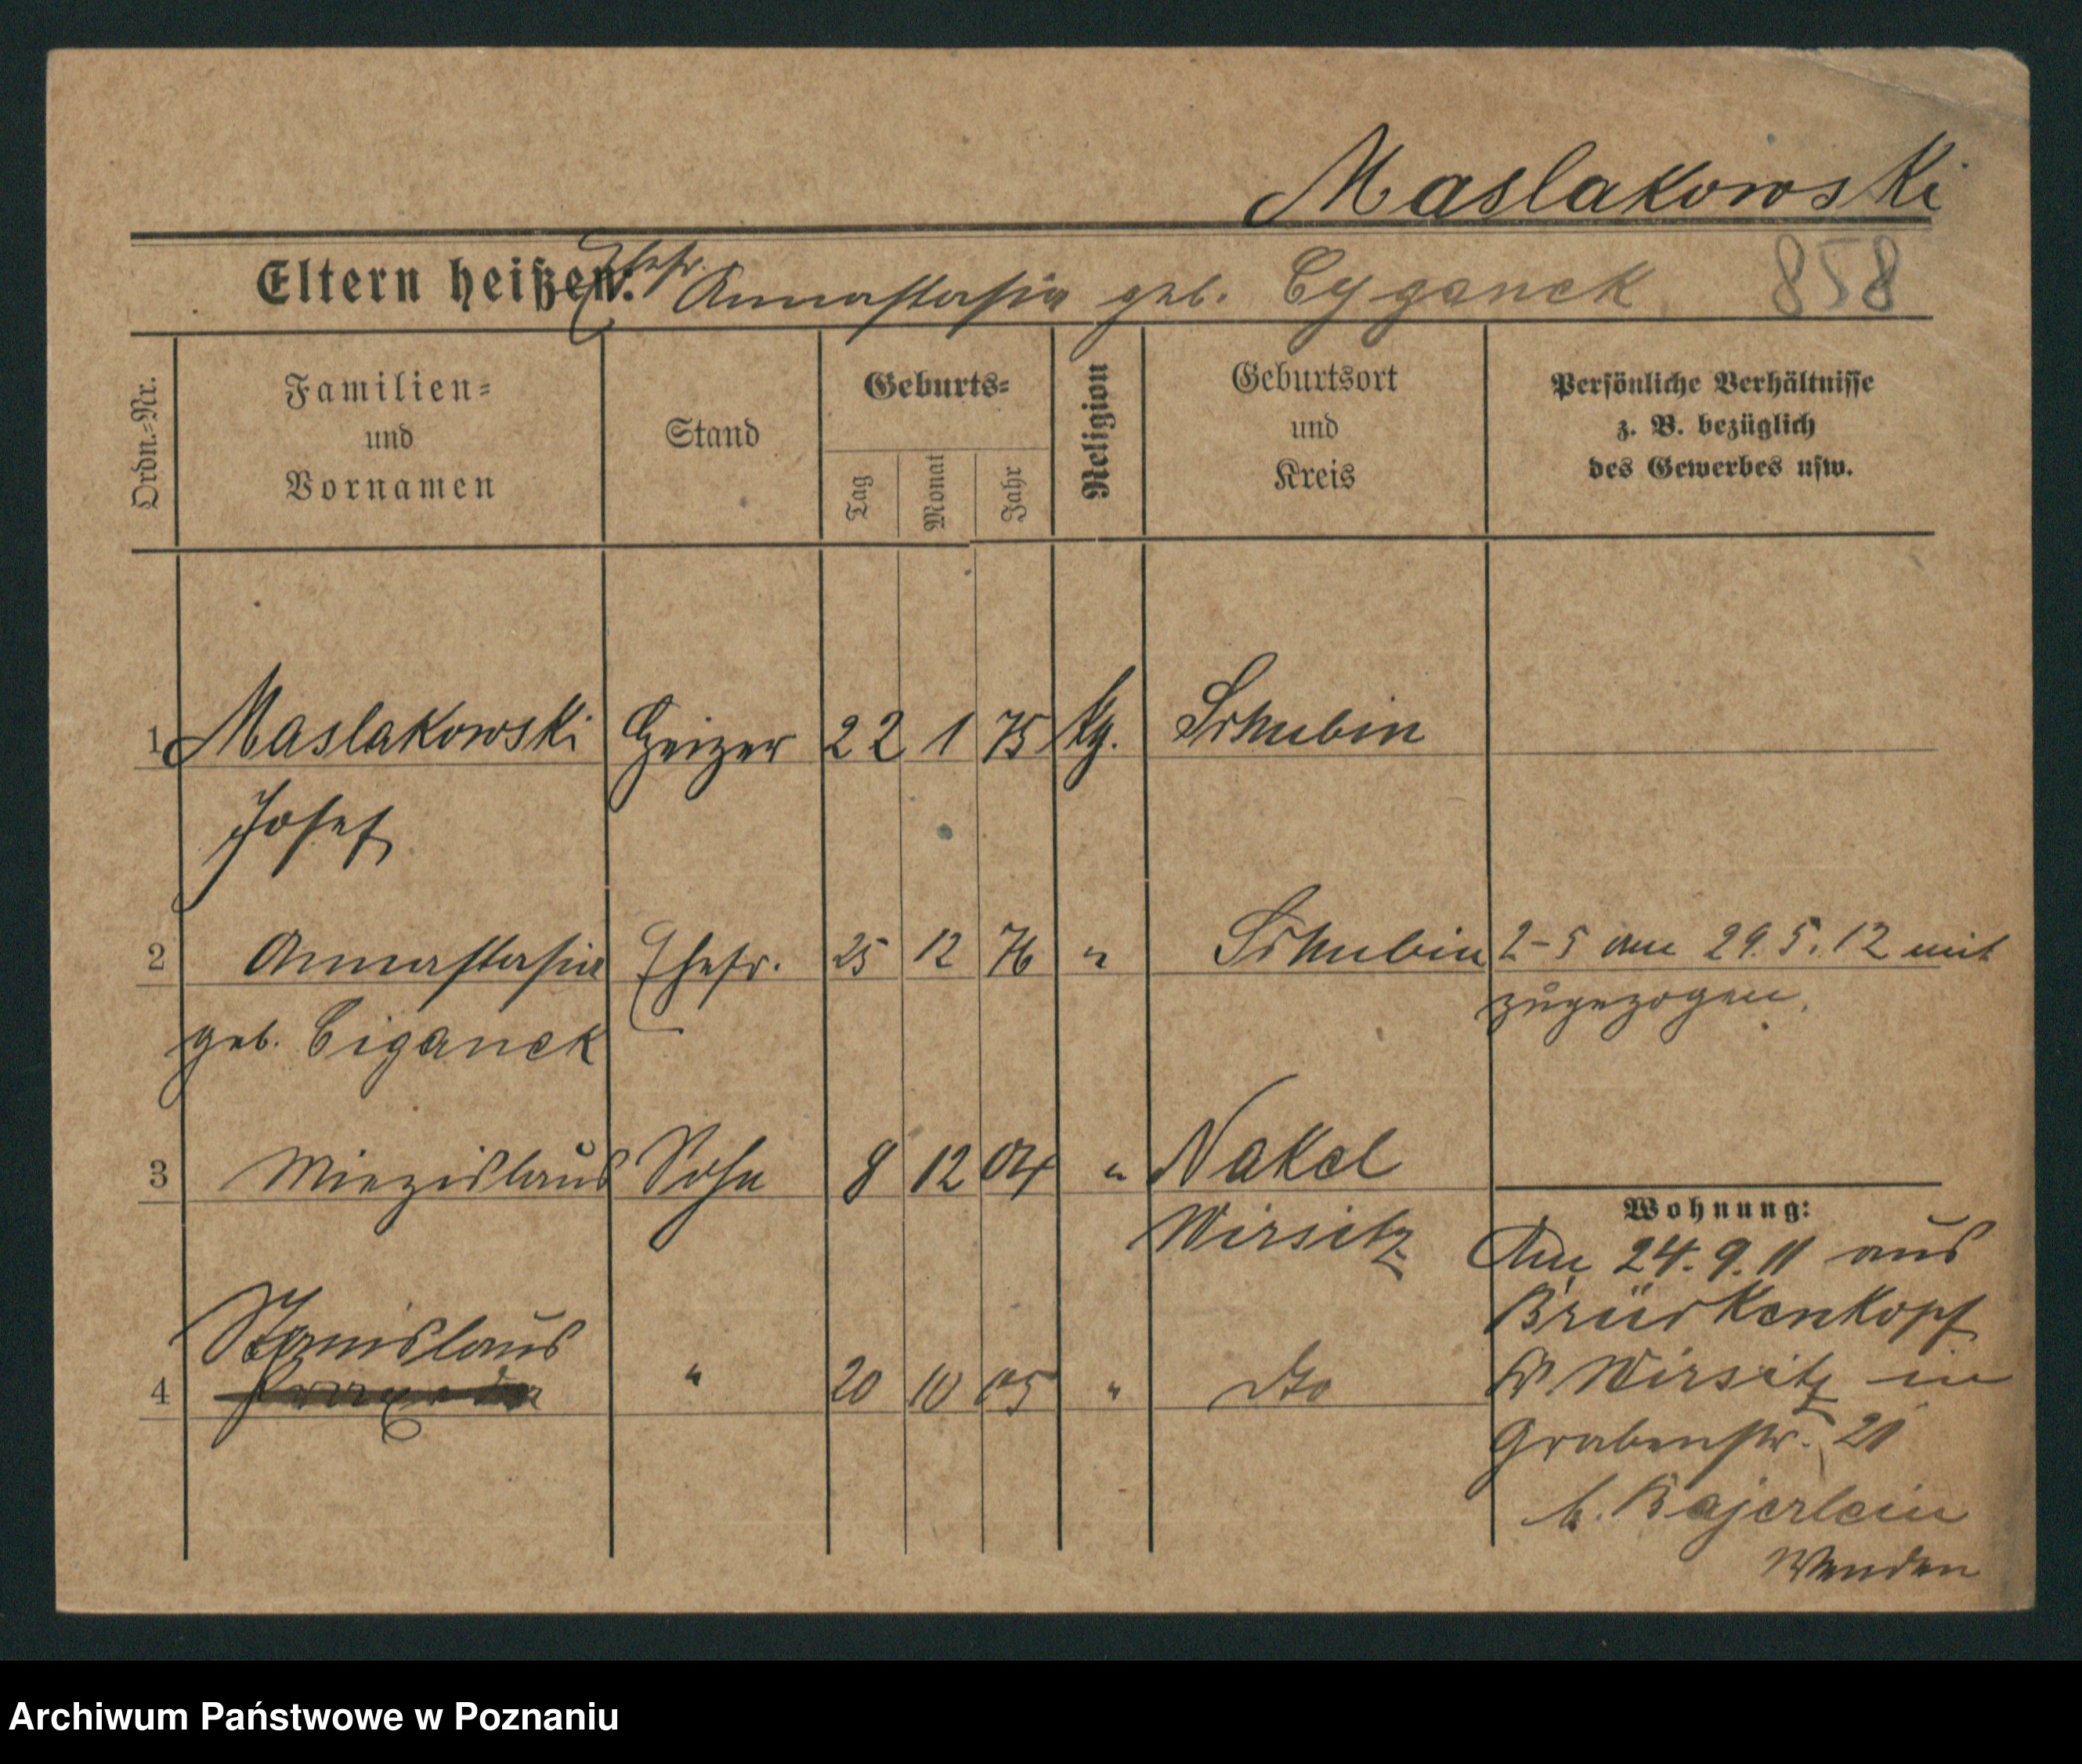 Maslakowski
Eltern heißen: Ehefr. Annastasia geb. Cyganek 858
Ordn.-Nr. Familien- und Vornamen Stand Geburts- Tag Monat Jahr Religion Geburtsort und Kreis Persönliche Verhältnisse z. B. bezüglich des Gewerbes usw.
1 Maslakowski Heizer 22 1 75 kg. Schubin
Josef
2 Annastasia Ehefr. 25 12 76 " Schubin 2-5 am 29.5.12 mit
geb. Ciganek zugezogen.
3 Miezislaus Sohn 8 12 04 " Nakel
Wirsitz
Wohnung:
Am 24.9.11 aus
Brückenkopf
Stanislaus
4 " 20 10 05 " dto Wirsitz in
Grabenstr. 21
b. Bajerlein
Wenden
Archiwum Państwowe w Poznaniu